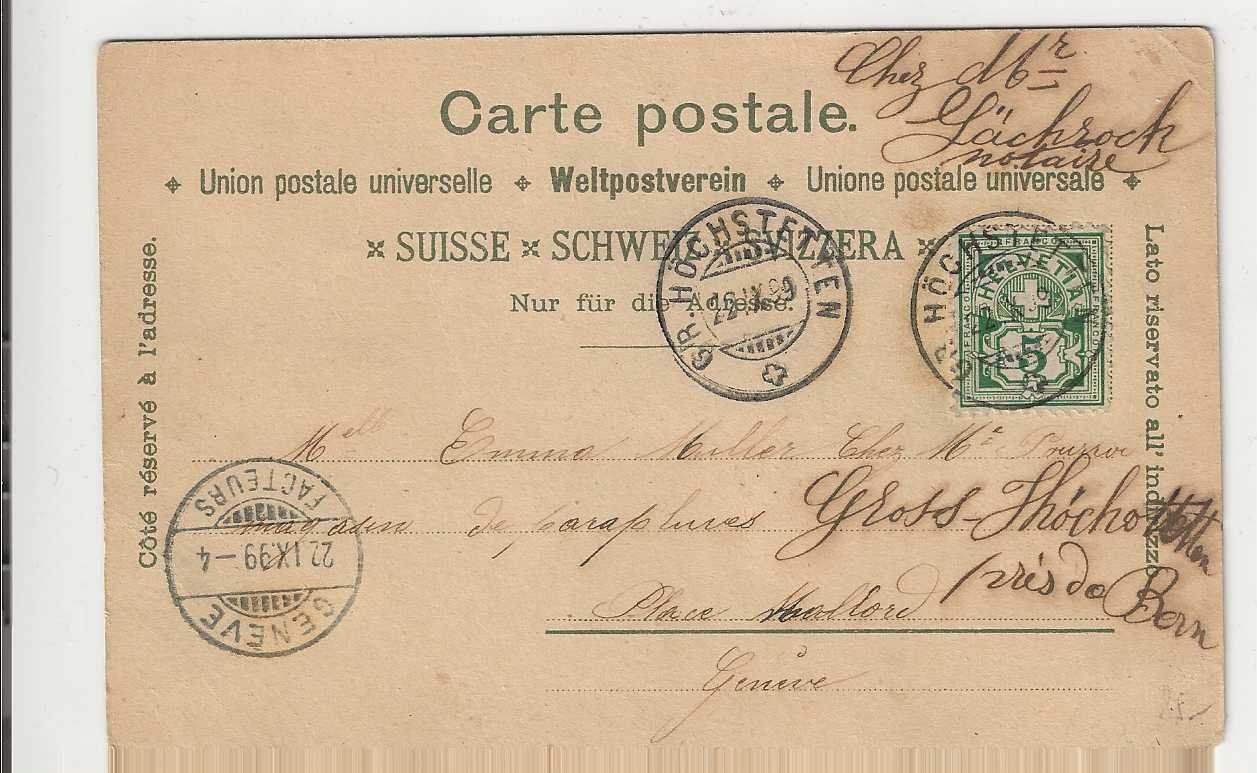 Chez Mr
Gächroch
notaire
Carte postale.
Union postale universelle Weltpostverein Unione postale universale
SUISSE SCHWEIZ SVIZZERA
Nur für die Adresse.
Côté réservé à l'adresse.
Lato riservato all' indirizzo
GR. HÖCHSTETTEN
22.IX.99
GR. HÖCHSTETTEN
FRANCO
HELVETIA
FRANCO
FRANCO
5
FACTEURS
22.IX.99-4
GENÈVE
Melle Emma Muller Chez Me
magasin de parapluies
Gross-Höchstetten
près de Bern
Place Mallord
Genève